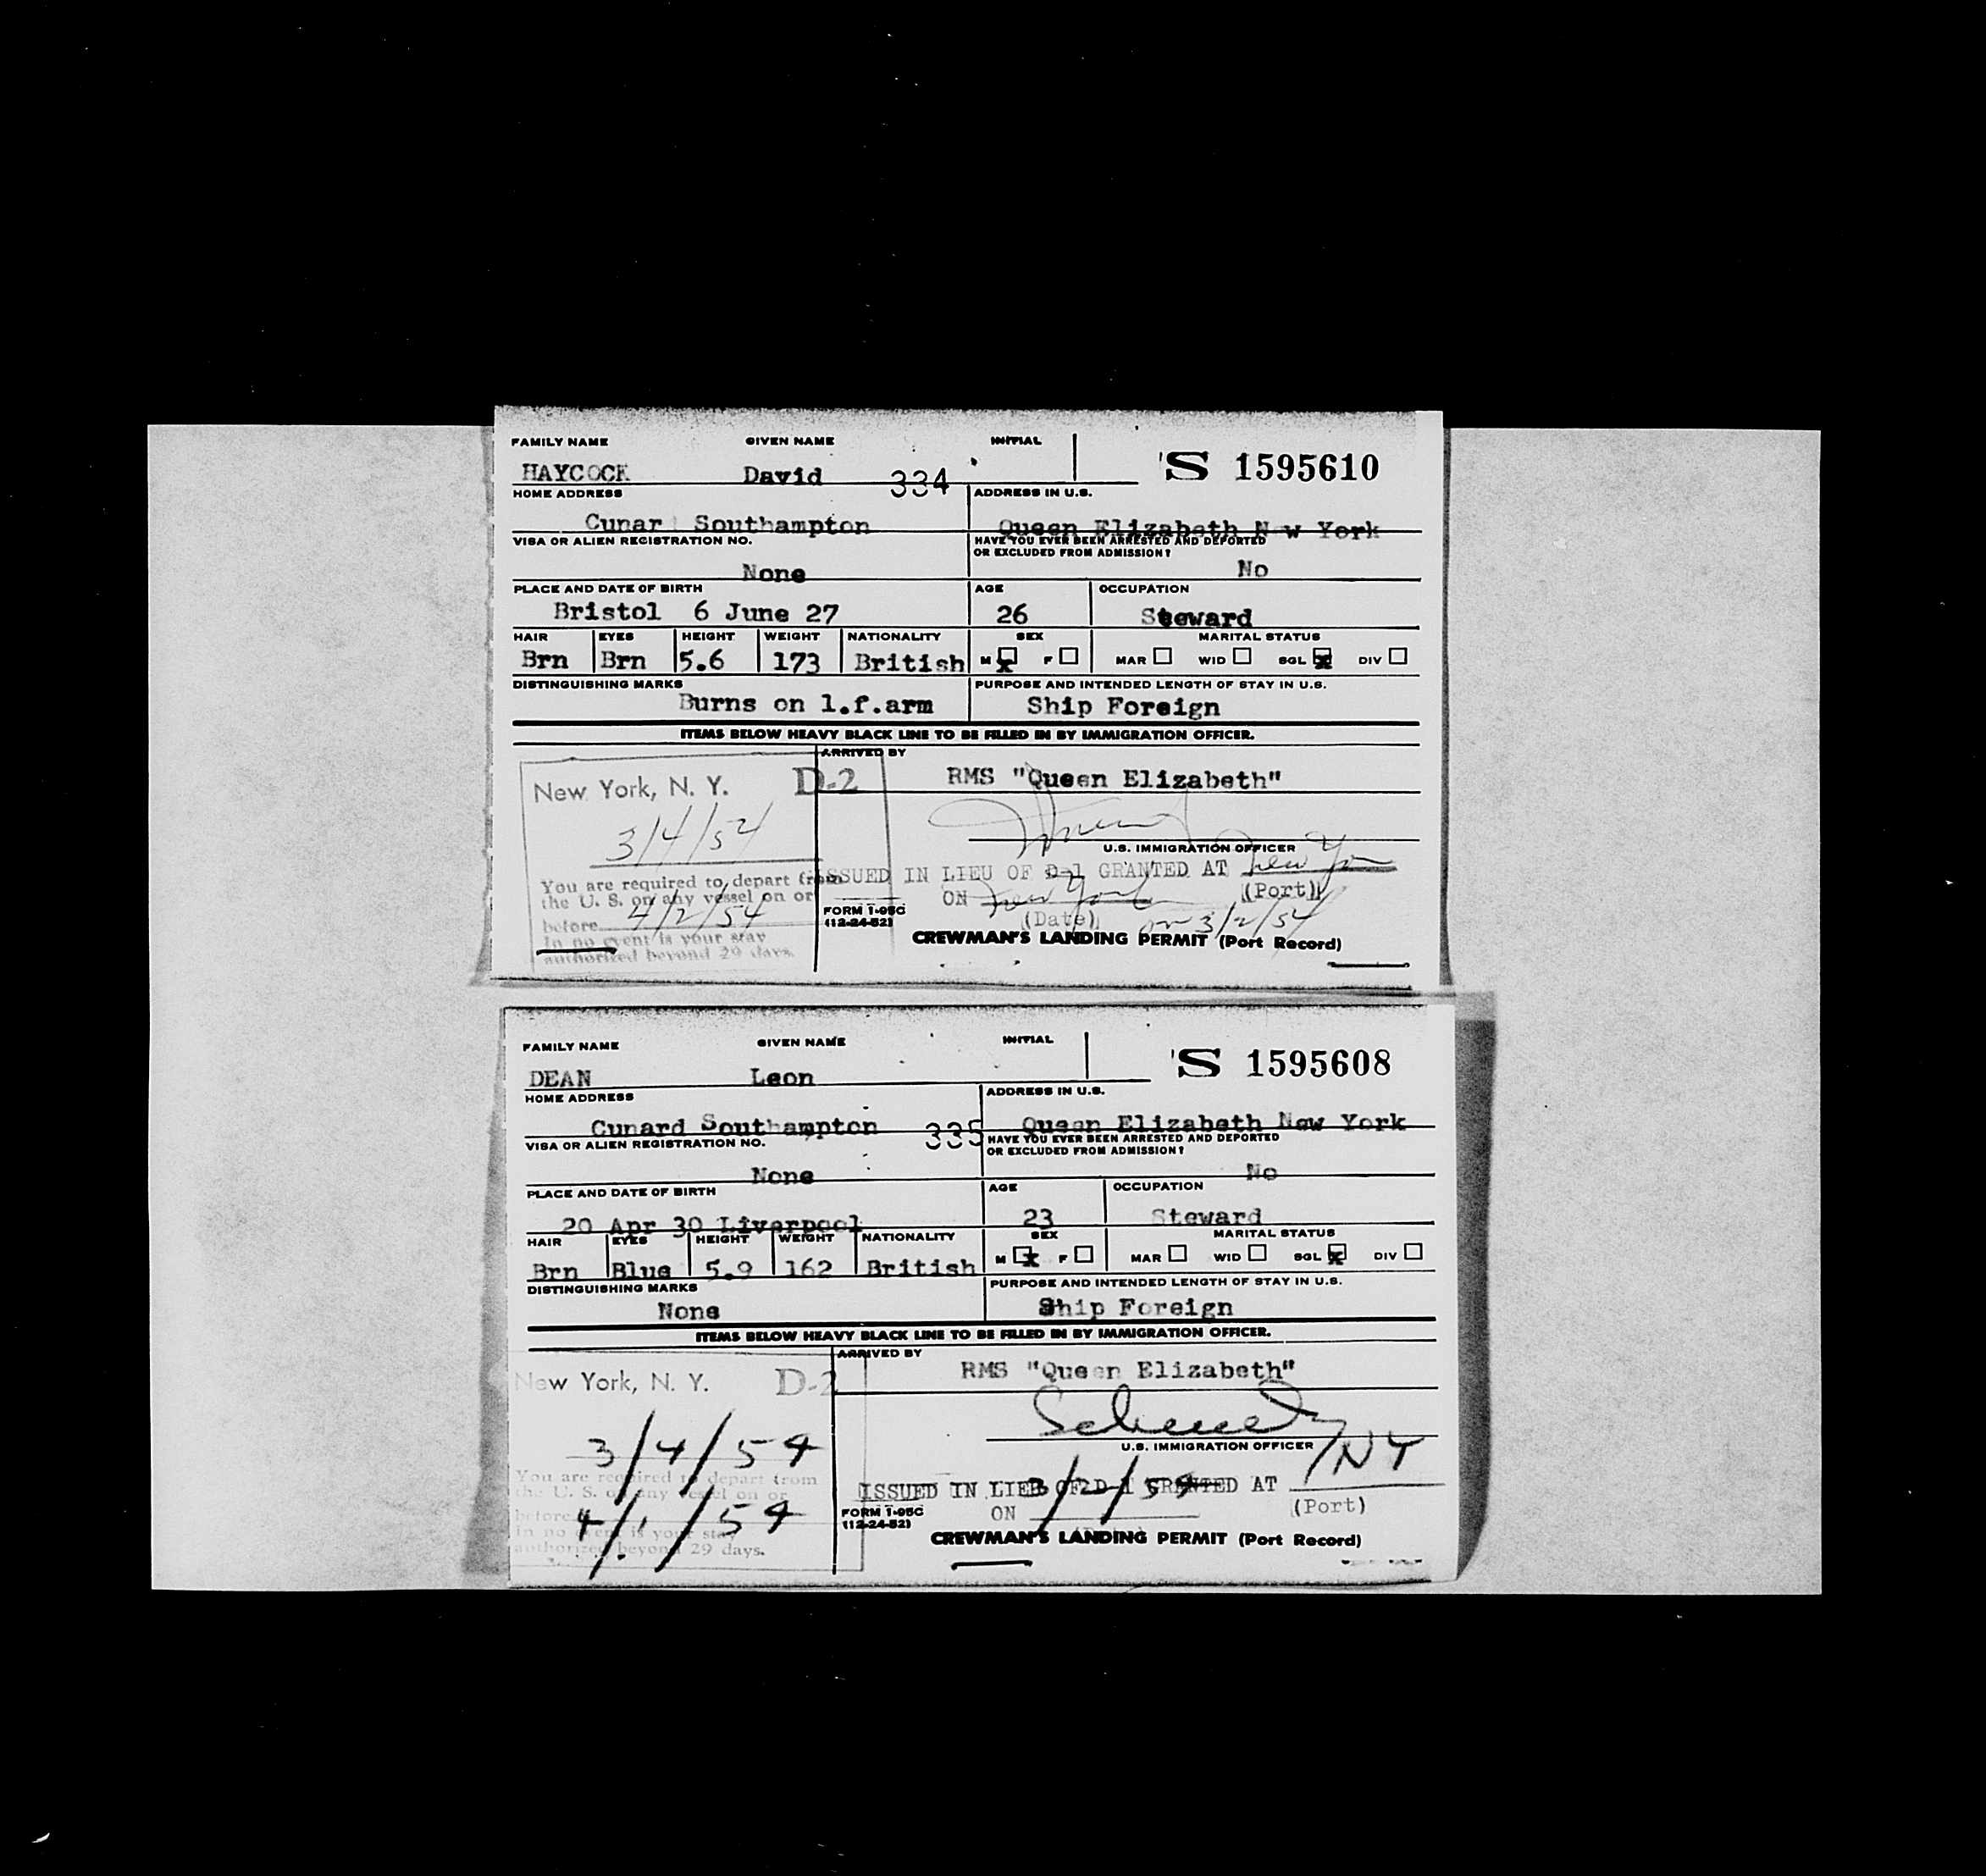 FAMILY NAME GIVEN NAME INITIAL
HAYCOCK David 334 S 1595610
HOME ADDRESS ADDRESS IN U.S.
Cunar Southampton Queen Elizabeth New York
VISA OR ALIEN REGISTRATION NO. HAVE YOU EVER BEEN ARRESTED AND DEPORTED
OR EXCLUDED FROM ADMISSION?
None No
PLACE AND DATE OF BIRTH AGE OCCUPATION
Bristol 6 June 27 26 Steward
HAIR EYES HEIGHT WEIGHT NATIONALITY SEX MARITAL STATUS
Brn Brn 5.6 173 British M X F MAR WID SGL X DIV
DISTINGUISHING MARKS PURPOSE AND INTENDED LENGTH OF STAY IN U.S.
Burns on l.f.arm Ship Foreign
ITEMS BELOW HEAVY BLACK LINE TO BE FILLED IN BY IMMIGRATION OFFICER.
ARRIVED BY
New York, N. Y. D-2 RMS "Queen Elizabeth"
3/4/54
U.S. IMMIGRATION OFFICER
You are required to depart from ISSUED IN LIEU OF D-1 GRANTED AT New York
the U. S. on any vessel on or ON New York (Port)
before 4/2/54 FORM I-95C (Date) on 3/2/54
(12-24-52)
In no event is your stay CREWMAN'S LANDING PERMIT (Port Record)
authorized beyond 29 days.
FAMILY NAME GIVEN NAME INITIAL
DEAN Leon S 1595608
HOME ADDRESS ADDRESS IN U.S.
Cunard Southampton 335 Queen Elizabeth New York
VISA OR ALIEN REGISTRATION NO. HAVE YOU EVER BEEN ARRESTED AND DEPORTED
OR EXCLUDED FROM ADMISSION?
None No
PLACE AND DATE OF BIRTH AGE OCCUPATION
20 Apr 30 Liverpool 23 Steward
HAIR EYES HEIGHT WEIGHT NATIONALITY SEX MARITAL STATUS
Brn Blue 5.9 162 British M X F MAR WID SGL X DIV
DISTINGUISHING MARKS PURPOSE AND INTENDED LENGTH OF STAY IN U.S.
None Ship Foreign
ITEMS BELOW HEAVY BLACK LINE TO BE FILLED IN BY IMMIGRATION OFFICER.
ARRIVED BY
New York, N. Y. D-2 RMS "Queen Elizabeth"
3/4/54
U.S. IMMIGRATION OFFICER
You are required to depart from NY
the U. S. on any vessel on or ISSUED IN LIEU OF D-1 GRANTED AT
3/2/54 (Port)
before 4/1/54 FORM I-95C ON
(12-24-52)
In no event is your stay CREWMAN'S LANDING PERMIT (Port Record)
authorized beyond 29 days.